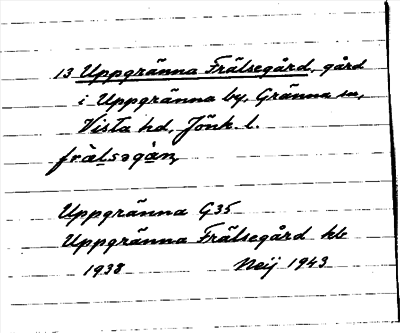 13 Uppgränna Frälsegård, gård
i Uppgränna by, Gränna sn,
Vista hd, Jönk. l.
frälsəgàn,
Uppgränna G35
Uppgränna Frälsegård kb
1938 Neij 1943